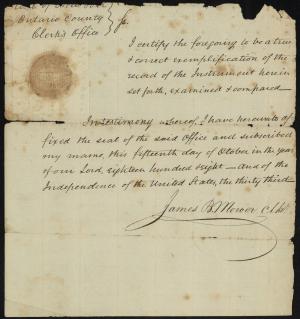 Ontario County } ss.
Clerk's Office
I certify the foregoing to be a true
& correct exemplification of the
record of the Instrument herein
set forth, examined & compared
In testimony whereof I have hereunto af
fixed the seal of the said Office and subscribed
my name, this fifteenth day of October in the year
of our Lord, Eighteen hundred Eight — and of the
Independence of the United States, the thirty third
James B. Mower Clk.